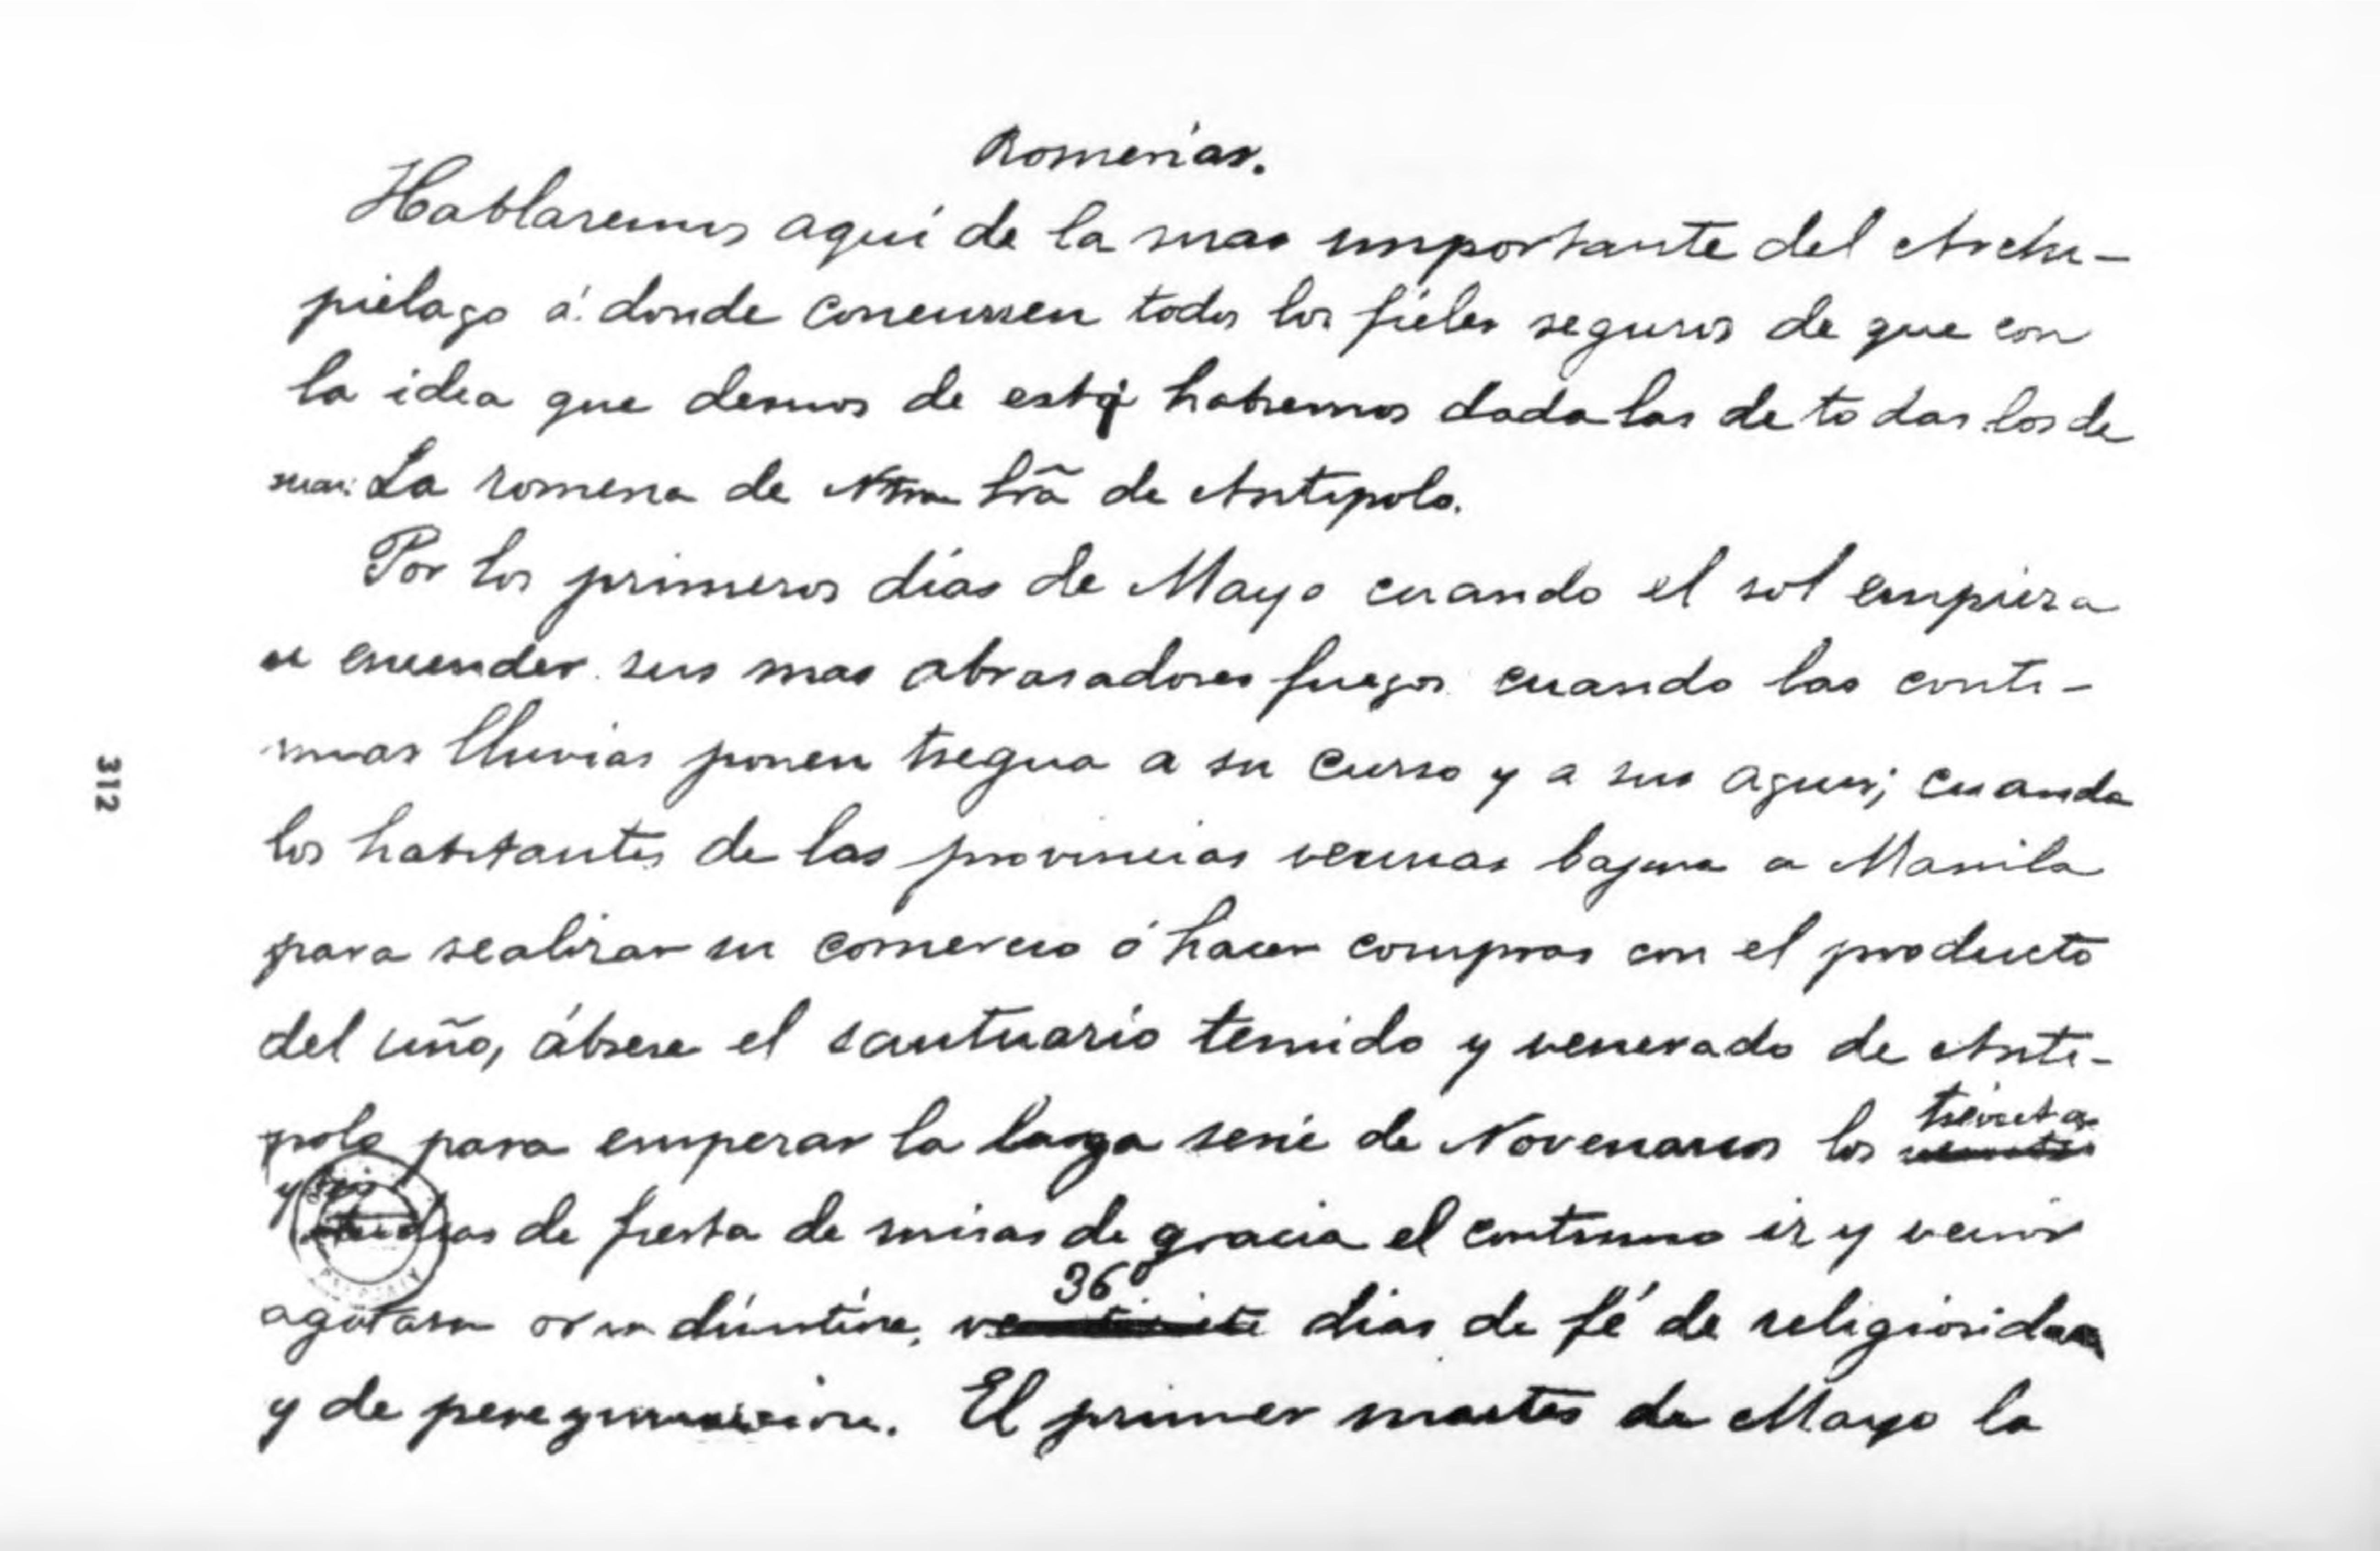 Romerías.
Hablaremos aquí de la mas importante del Archi-
piélago á donde concurren todos los fieles seguros de que con
la idea que demos de esta habremos dado las de todas las de
mas: La romeria de Ntra Srã de Antipolo.
Por los primeros días de Mayo cuando el sol empieza
a encender sus mas abrasadores fuegos cuando las conti-
nuas lluvias ponen tregua a su curso y a sus aguas; cuando
los habitantes de las provincias vecinas bajan a Manila
para realizar su comercio ó hacer compras con el producto
del año, ábrese el santuario temido y venerado de Anti-
polo para empezar la larga serie de Novenarios los treinta
y tres dias de fiesta de misas de gracia el continuo ir y venir
36 dias de fé de religiosidad
y de peregrinacion. El primer martes de Mayo la
312